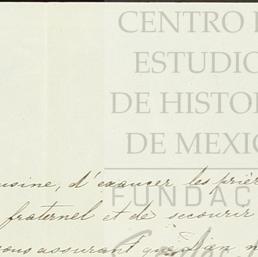 CENTRO
ESTUDIO
DE HISTOR
DE MEXIC
FUNDAC
usine, d'exaucer les prièr
fraternel et de secourir
ous assurant que Dieu